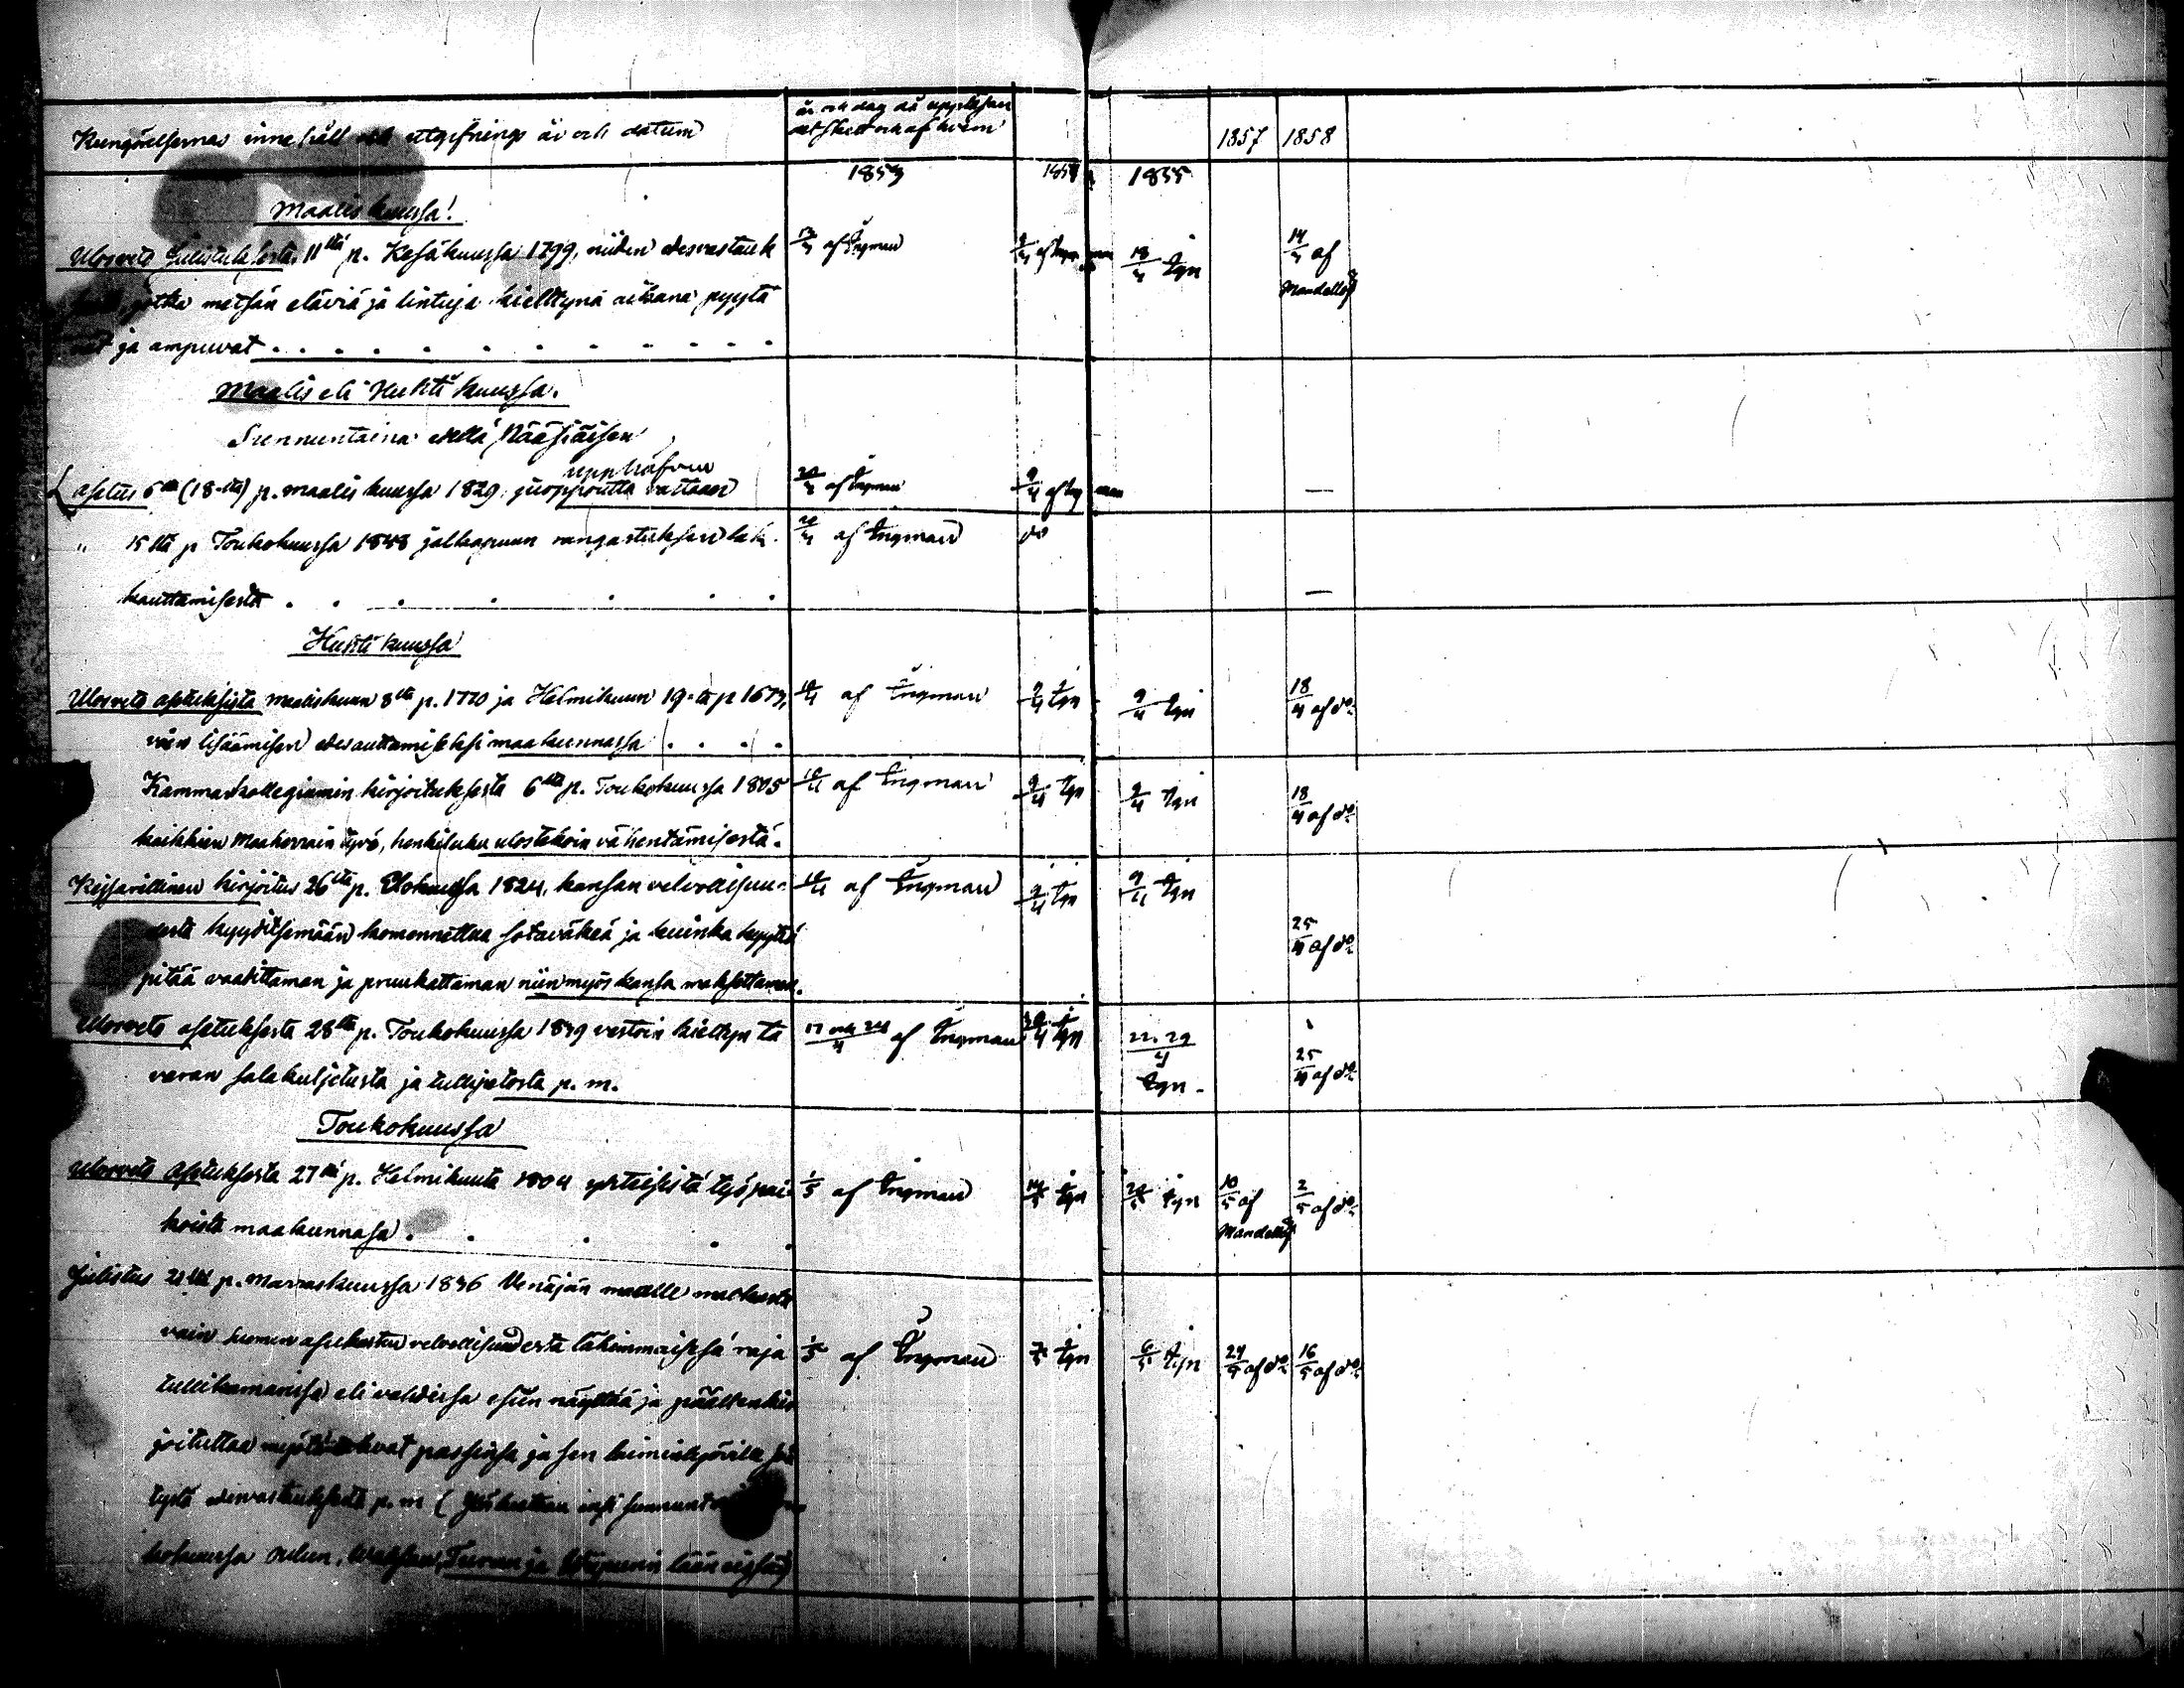 Kungörelsernas innehåll och utgifnings år och datum
år och dag då uppläsan
det skett och af hvem
1857 1858
1853 1854 1855
Maaliskuussa!
Ulosveto Julistuksesta 11tä p. Kesäkuussa 1799, niiden edesvastauk
jotka metsän eläviä ja lintuja kielttynä aikana pyytä
vät ja ampuvat . . . . . . . . . . .
af Ingman
18/4 Ign
14/4 af
Mandellöf
Maalis eli Huhti kuussa.
Sunnuntaina edellä Pääsiäisen
upphäfven
Asetus 6tta (18-sta) p. maalis kuussa 1829 juoppoutta vastaan
20/3 af Ingman 9/4 af Ing man —
" 15 ttä p Toukokuussa 1848 jalkapuun rangastuksen lak.
kauttamisesta . . . . . . .
af Ingman do —
Huhti kuussa
Ulosveto asetuksista Maaliskuun 8tta p. 1770 ja Helmikuun 19-tä p 1673,
vien lisäämisen edesauttamiseksi maakunnassa . . . .
10/4 af Ingman 9/4 Ign 9/4 Ign 18/4 af do
Kammarkollegiumin kirjoituksesta 6tta p. Toukokuussa 1805
kaikkien Maaherrain työ, henkiluku ulostekoin vähentämisestä.
10/4 af Ingman 9/4 Ign 9/4 Ign 18/4 af do
Keisarillinen kirjoitus 26tta p. Elokuussa 1824, kansan velvollisuu-
desta kyyditsemään komennettua sotaväkeä ja kuinka kyytiä
pitää vaadittaman ja pruukattaman niin myös kansa maksettaman.
10/4 af Ingman 9/4 Ign 9/4 Ign 25/4 af do
Ulosveto asetuksesta 28tta p. Toukokuussa 1839 vastoin kielttyn tä
varan salakuljetusta ja tullipetosta p. m.
17 och 24/4 af Ingman Ign 22. 29/4 Ign - 25/4 af do
Toukokuussa
Ulosveto Asetuksesta 27tä p. Helmikuuta 1804 yhteisistä työ pai
koista maakunnasa . . . . .
1/5 af Ingman 14/5 Ign 20/5 Ign 10/5 af Mandellöf 2/5 af do
Julistus p. Marraskuussa 1836 Venäjän maalle matkusta
vain Suomen asukasten velvollisuudesta lähimmäisessä raja
tullikamarissa eli vahdissa esiin näyttää ja päällenkir
joituttaa passinsa ja sen laiminlyöville
tystä edesvastuuksesta p. m (
kokuussa Oulun, Waasan, Turun ja Wiipurin lääneissä)
1/5 af Ingman 7/5 Ign 6/5 Ign 24/5 af do 16/5 af do